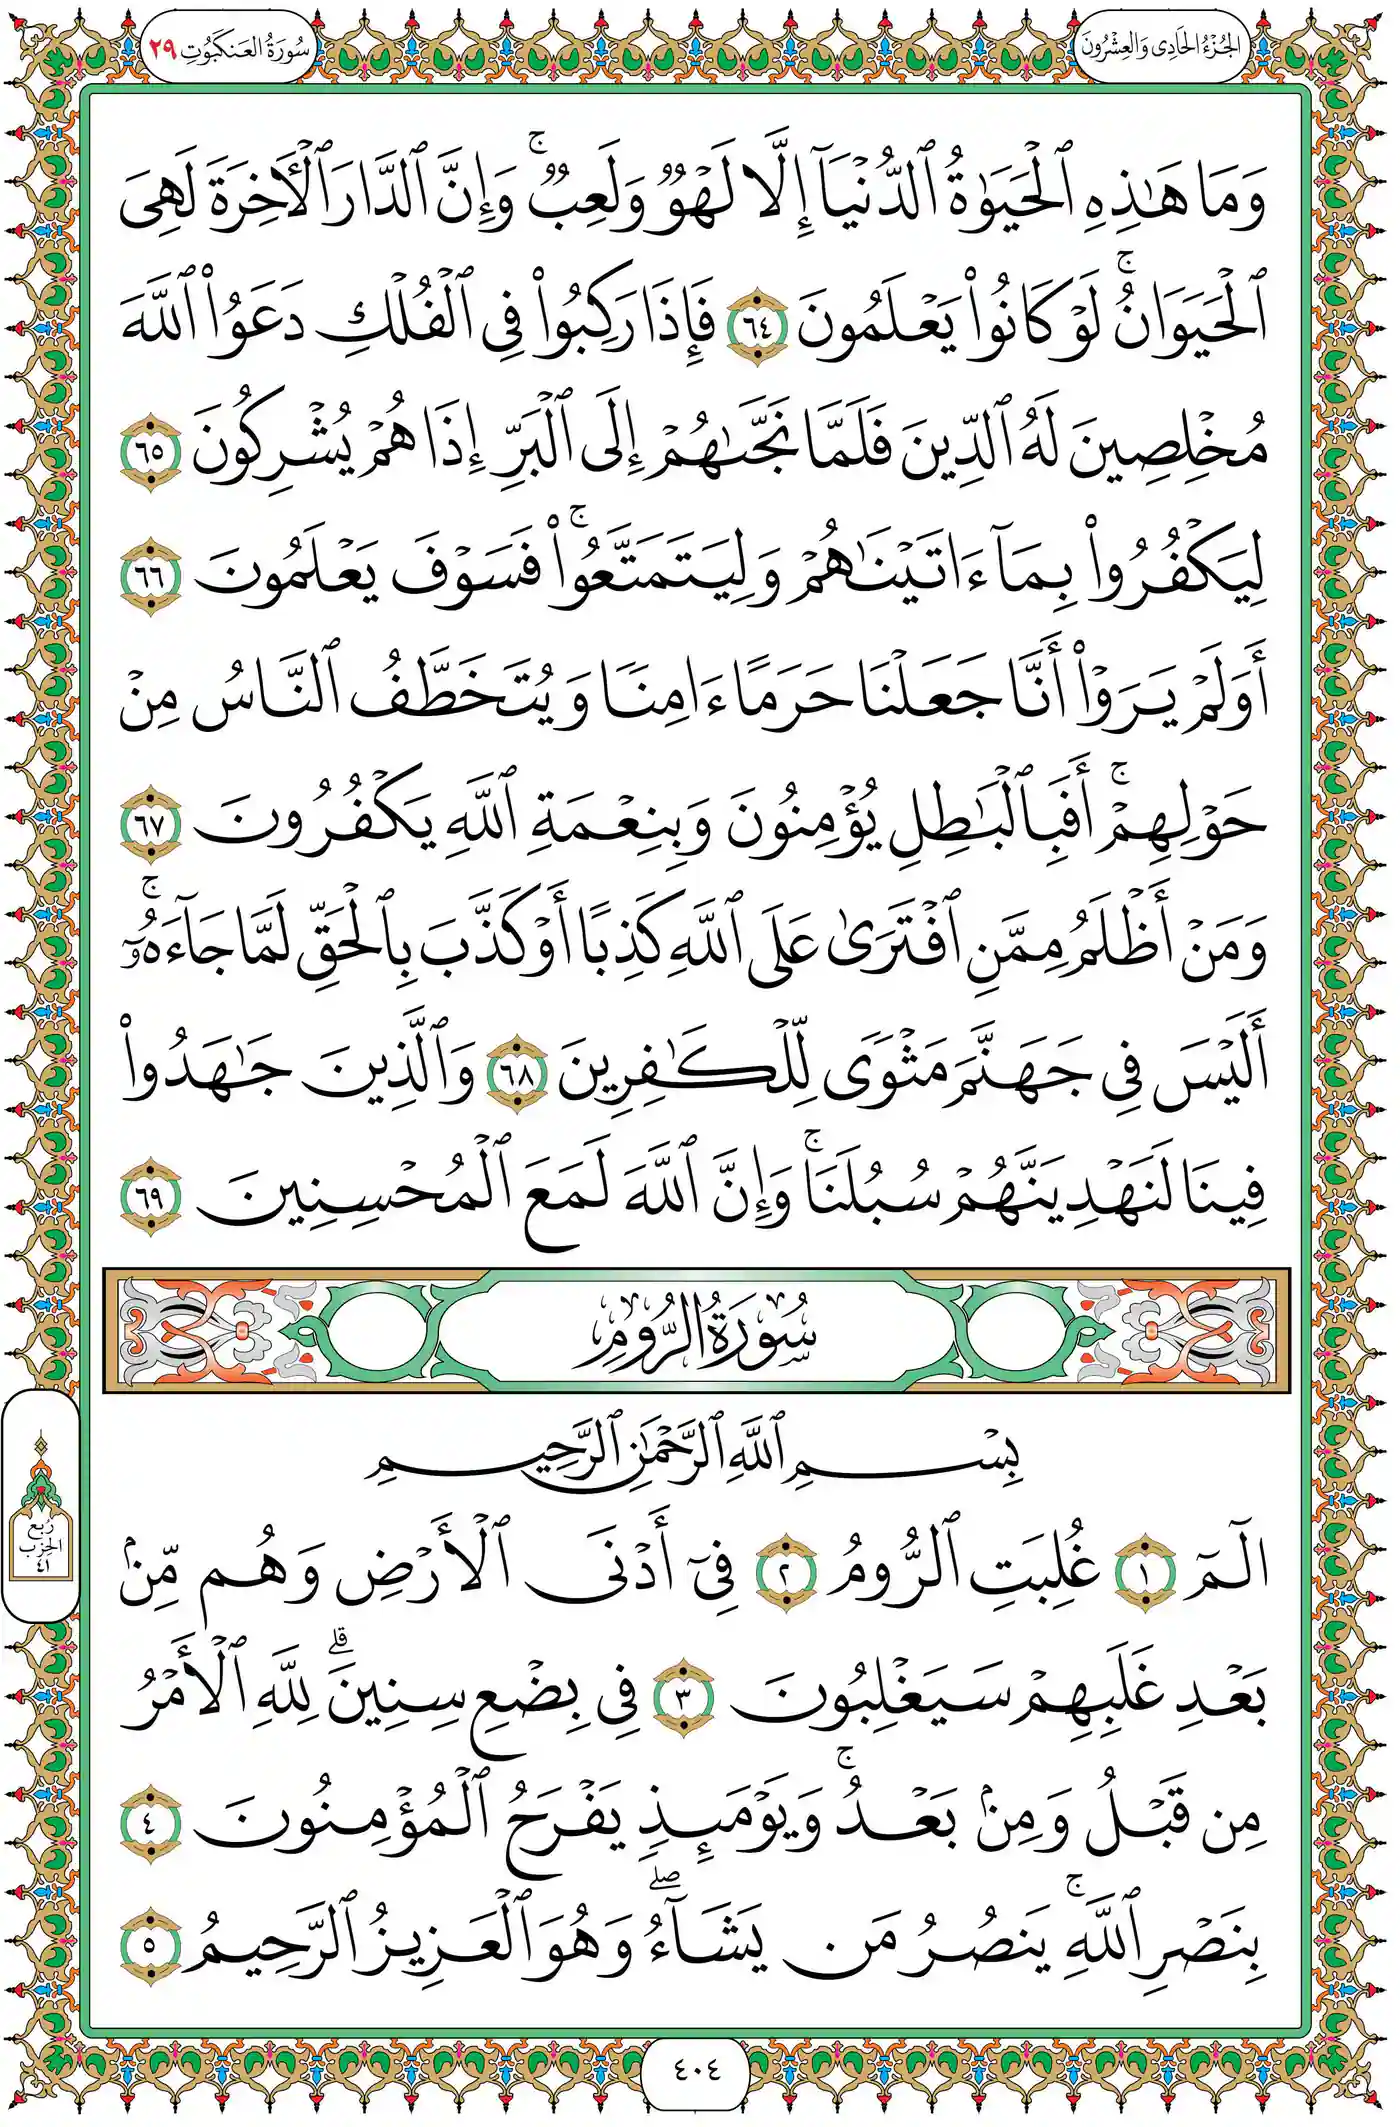 الجُزْءُ الحَادِى وَالعِشْرُونَ
سُورَةُ العَنكَبُوتِ ٢٩
وَمَا هَـٰذِهِ ٱلْحَيَوٰةُ ٱلدُّنْيَآ إِلَّا لَهْوٌ وَلَعِبٌ ۚ وَإِنَّ ٱلدَّارَ ٱلْـَٔاخِرَةَ لَهِىَ
ٱلْحَيَوَانُ ۚ لَوْ كَانُوا۟ يَعْلَمُونَ ٦٤ فَإِذَا رَكِبُوا۟ فِى ٱلْفُلْكِ دَعَوُا۟ ٱللَّهَ
مُخْلِصِينَ لَهُ ٱلدِّينَ فَلَمَّا نَجَّىٰهُمْ إِلَى ٱلْبَرِّ إِذَا هُمْ يُشْرِكُونَ ٦٥
لِيَكْفُرُوا۟ بِمَآ ءَاتَيْنَـٰهُمْ وَلِيَتَمَتَّعُوا۟ ۚ فَسَوْفَ يَعْلَمُونَ ٦٦
أَوَلَمْ يَرَوْا۟ أَنَّا جَعَلْنَا حَرَمًا ءَامِنًا وَيُتَخَطَّفُ ٱلنَّاسُ مِنْ
حَوْلِهِمْ ۚ أَفَبِٱلْبَـٰطِلِ يُؤْمِنُونَ وَبِنِعْمَةِ ٱللَّهِ يَكْفُرُونَ ٦٧
وَمَنْ أَظْلَمُ مِمَّنِ ٱفْتَرَىٰ عَلَى ٱللَّهِ كَذِبًا أَوْ كَذَّبَ بِٱلْحَقِّ لَمَّا جَآءَهُۥٓ ۚ
أَلَيْسَ فِى جَهَنَّمَ مَثْوًى لِّلْكَـٰفِرِينَ ٦٨ وَٱلَّذِينَ جَـٰهَدُوا۟
فِينَا لَنَهْدِيَنَّهُمْ سُبُلَنَا ۚ وَإِنَّ ٱللَّهَ لَمَعَ ٱلْمُحْسِنِينَ ٦٩
سُورَةُ الرُّومِ
بِسْمِ ٱللَّهِ ٱلرَّحْمَـٰنِ ٱلرَّحِيمِ
الٓمٓ ١ غُلِبَتِ ٱلرُّومُ ٢ فِىٓ أَدْنَى ٱلْأَرْضِ وَهُم مِّنۢ
بَعْدِ غَلَبِهِمْ سَيَغْلِبُونَ ٣ فِى بِضْعِ سِنِينَ ۗ لِلَّهِ ٱلْأَمْرُ
مِن قَبْلُ وَمِنۢ بَعْدُ ۚ وَيَوْمَئِذٍ يَفْرَحُ ٱلْمُؤْمِنُونَ ٤
بِنَصْرِ ٱللَّهِ ۚ يَنصُرُ مَن يَشَآءُ ۖ وَهُوَ ٱلْعَزِيزُ ٱلرَّحِيمُ ٥
رُبع
الحِزْب
٤١
٤٠٤